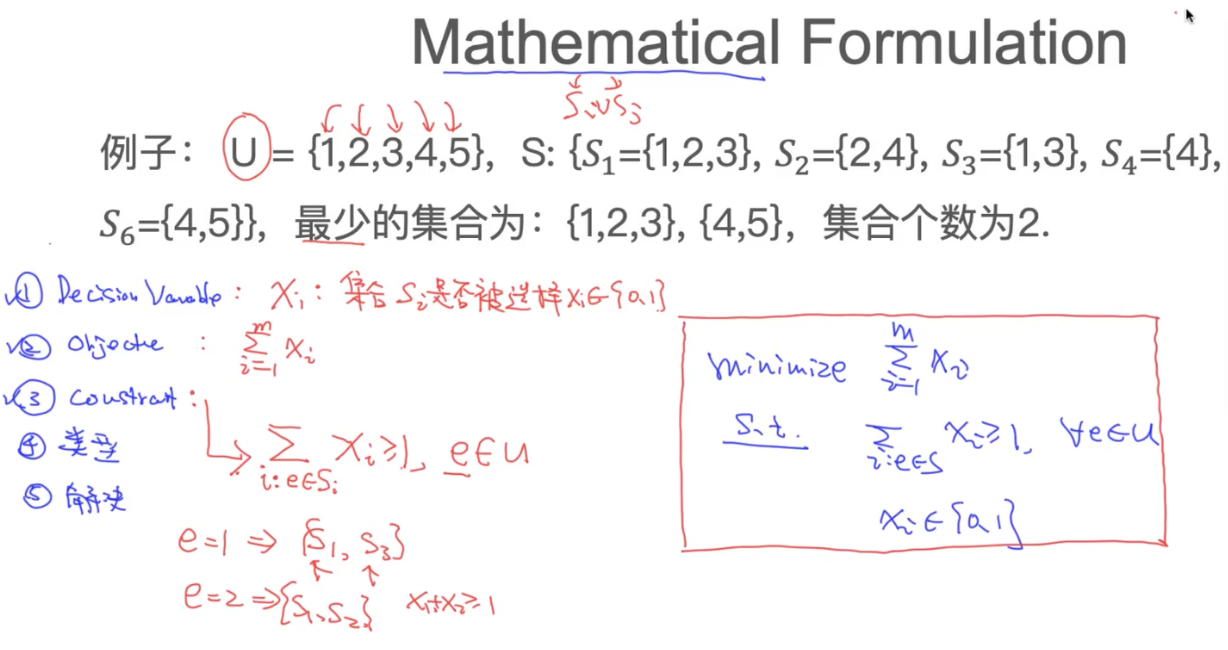 Mathematical Formulation
S₁∪S₃
例子： U = {1,2,3,4,5}, S: {S₁={1,2,3}, S₂={2,4}, S₃={1,3}, S₄={4},
S₆={4,5}}, 最少的集合为：{1,2,3}, {4,5}, 集合个数为2.
① Decision Variable : Xᵢ : 集合 Sᵢ是否被选择 xᵢ∈{0,1}
② Objective : ∑ᵢ₌₁ᵐ Xᵢ
③ Constraint :
∑_{i:e∈Sᵢ} Xᵢ≥1, e∈U
④ 类型
⑤ 解决
e=1 ⇒ {S₁, S₃}
e=2 ⇒ {S₁, S₂} X₁+X₂≥1
minimize ∑ᵢ₌₁ᵐ Xᵢ
s.t. ∑_{i:e∈S} Xᵢ≥1, ∀e∈U
Xᵢ∈{0,1}